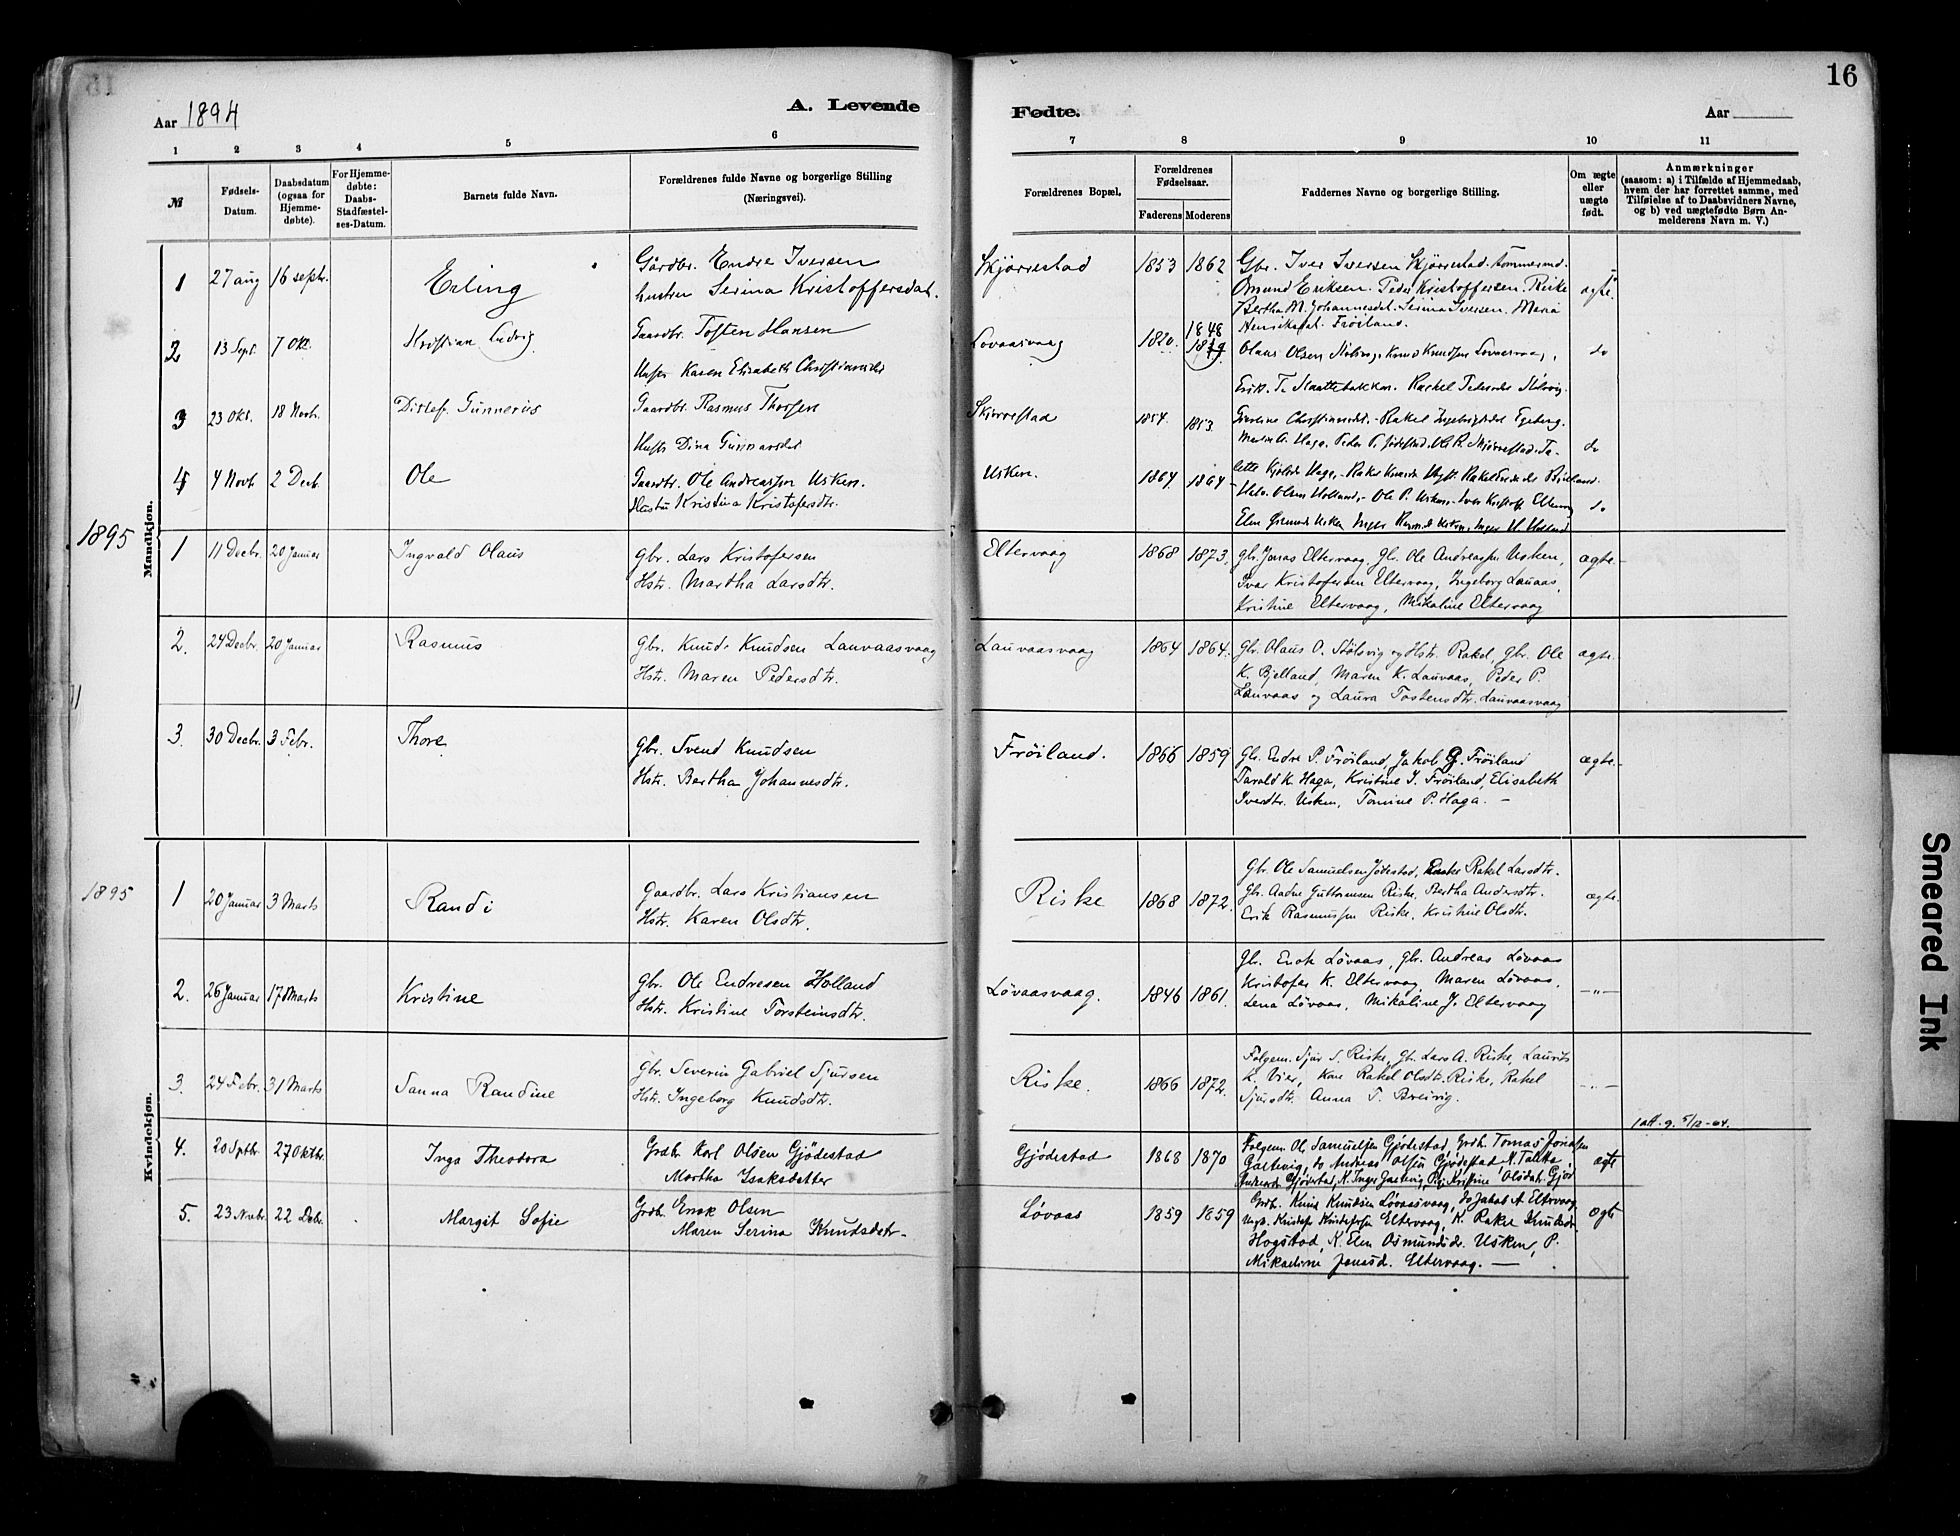 16
Aar 1894
A. Levende
Fødte.
Aar
1 2 3 4 5 6 7 8 9 10 11
№
Fødsels-
Datum.
Daabsdatum
(ogsaa for
Hjemme-
døbte).
For Hjemme-
døbte:
Daabs-
Stadfæstel-
ses-Datum.
Barnets fulde Navn.
Forældrenes fulde Navne og borgerlige Stilling
(Næringsvei).
Forældrenes Bopæl.
Forældrenes
Fødselsaar.
Faderens Moderens
Faddernes Navne og borgerlige Stilling.
Om ægte
eller
uægte
født.
Anmærkninger
(saasom: a) i Tilfælde af Hjemmedaab,
hvem der har forrettet samme, med
Tilføielse af to Daabsvidners Navne,
og b) ved uægtefødte Børn An-
melderens Navn m. V.)
Mandkjøn.
1 27 aug 16 septr. Erling
Gårdbr. Endre Iversen
hustru Serina Kristoffersdat.
Skjørrestad 1853 1862
Gbr. Iver Iversen Skjørrestad. tømmermd.
Omund Eriksen. Peder Kristoffersen. Riske
Bertha M. Johannesdat. Serina Iversen. Maria
Henriksdat. Frøiland.
ægte.
2 13 Sept. 7 Okt. Kristian Ludvig
Gaardbr. Tosten Hansen
Hustr Karen Elisabeth Christiansdtr
Lovaasvaag 1820. 1848
Olaus Olsen Stølsvig, Knud Knudsen Lovaasvaag,
Erik T. Maattebakken. Rachel Pedersdtr Stølsvig.
do
3 23 Okt. 18 Novb. Ditlef Gunnerius
Gaardbr. Rasmus Thorsen
Hustr Dina Gunnarsdtr
Skjørrestad 1854. 1853.
do
4 4 Novb. 2 Decb. Ole
Gaardbr. Ole Andreassen Usken.
Hustru Kristina Kristofersdtr.
Usken. 1864 1864
do
1895
1 11 Decbr. 20 Januar Ingvald Olaus
Gbr. Lars Kristofersen
Hstr. Martha Larsdtr.
Eltervaag 1868 1873.
Gbr. Jonas Eltervaag. Gbr. Ole Andreassen Usken,
Ivar Kristofersen Eltervaag, Ingeborg Lauvaas,
Kristine Eltervaag, Mikaline Eltervaag
ægte.-
2. 24 Decbr. 20 Januar Rasmus
Gbr. Knud Knudsen Lauvaasvaag
Hstr. Maren Pedersdtr.
Lauvaasvaag 1864 1864.
Gbr. Olaus O. Stølsvig og Hstr. Rakel, Gbr. Ole
K. Bjelland, Maren K. Lauvaas, Peder P.
Lauvaas og Laura Tostensdtr. Lauvaasvaag
ægte.
3. 30 Decbr. 3 Febr. Thore
Gbr. Svend Knudsen
Hstr. Bertha Johannesdtr.
Frøiland. 1866 1859
Gbr. Endre P. Frøiland, Jakob G. Frøiland
Tarald K. Haga, Kristine I. Frøiland, Elisabeth
Iversdtr. Usken, Tomine P. Haga. -
ægte.-
Kvindekjøn.
1895
1 20 Januar 3 Marts Randi
Gaardbr. Lars Kristiansen
Hstr. Karen Olsdtr.
Riske 1868 1872.
Gbr. Ole Samuelsen Jødestad, Rakel Larsdtr.
Gbr. Aadne Guttormsen Riske, Bertha Andersdtr.
Erik Rasmussen Riske, Kristine Olsdtr.
ægte.
2. 26 Januar 17 Marts Kristine
Gbr. Ole Endresen Holland
Hstr. Kristine Torsteinsdtr.
Løvaasvaag. 1846 1861.
Gbr. Enok Løvaas, Gbr. Andreas Løvaas
Kristofer K. Eltervaag, Maren Løvaas,
Lena Løvaas, Mikaline J. Eltervaag
-"-
3. 24 Febr. 31 Marts Sanna Randine
Gbr. Severin Gabriel Sjursen
Hstr. Ingeborg Knudsdtr.
Riske. 1866 1872.
Følgem. Sjur S. Riske, Gbr. Lars A. Riske, Laurits
L. Vier, Kone Rakel Olsdtr. Riske, Rakel
Sjursdtr. Anna T. Breivig.
-"-
1 att. g. 5/12-64.
4. 20 Sptbr. 27 Oktbr. Inga Theodora
Grdb. Karl Olsen Gjødestad
Martha Isaksdatter
Gjødestad 1868 1870
Følgem. Ole Samuelsen Gjødestad, Grdb. Tomas Jonassen
ægte
5. 23 Novbr. 22 Debr. Margit Sofie
Grdb. Enok Olsen
Maren Serina Knutsdatr.
Løvaas 1859 1859
Grdb. Knud Knudsen Løvaasvaag, do Jakob A. Eltervaag
Ungk. Kristofer Kristofersen Eltervaag, K. Rakel Knudsdr.
Hogstad, K. Elen Osmundsdr. Usken, P.
Mikaeline Jonasd. Eltervaag. -
ægte
Smeared Ink